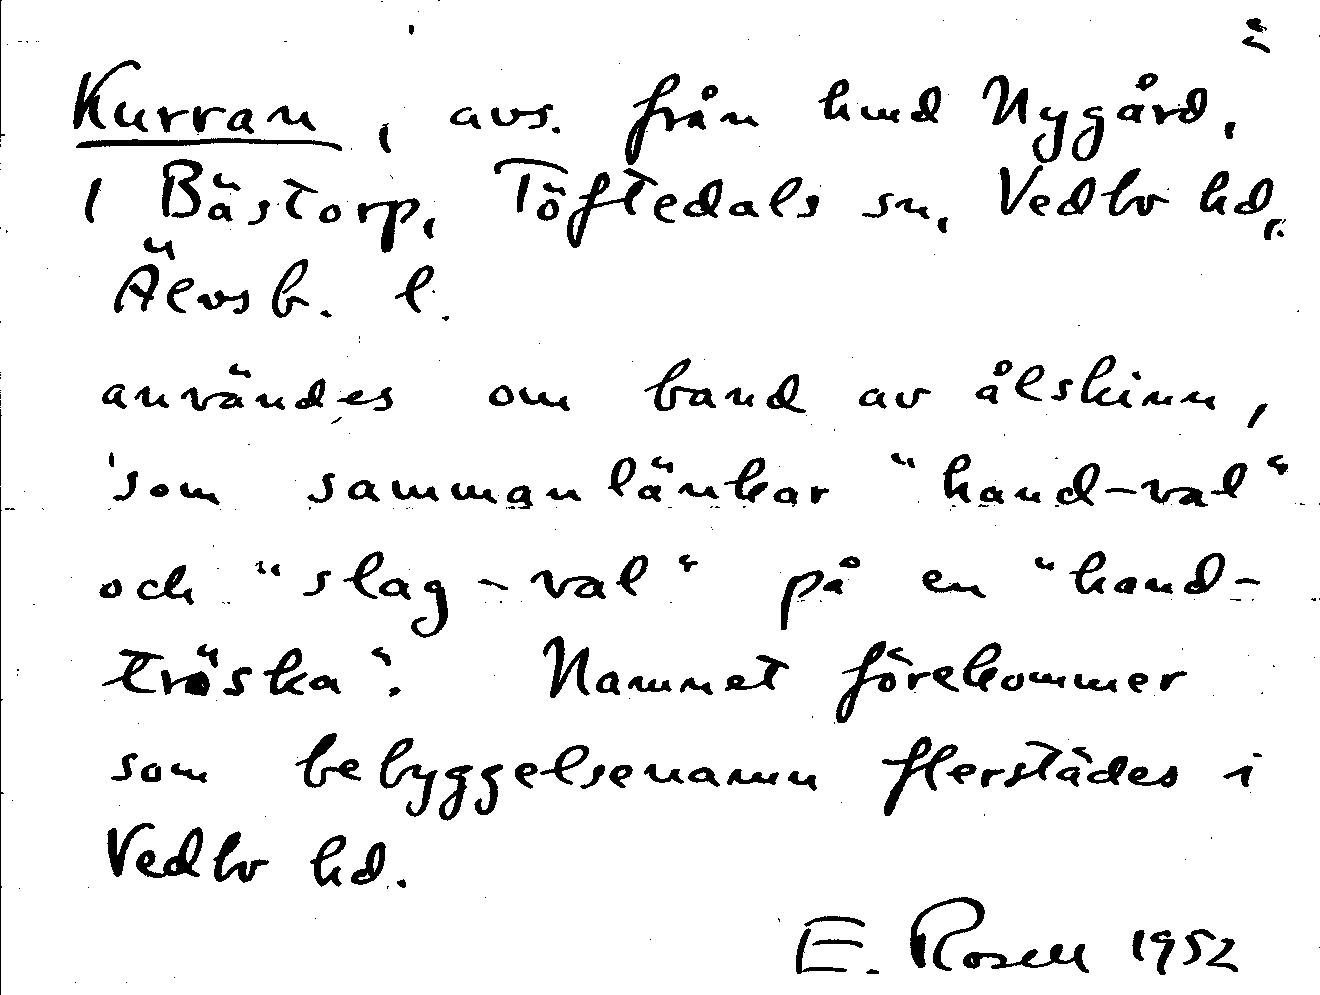 Kurran, avs. från hmd Nygård,
1 Bästorp, Töftedals sn, Vedbo hd,
Älvsb. l.
användes om band av ålskinn,
som sammanlänkar "hand-val"
och "slag-val" på en "hand-
tröska". Namnet förekommer
som bebyggelsenamn flerstädes i
Vedbo hd.
E. Rosell 1952